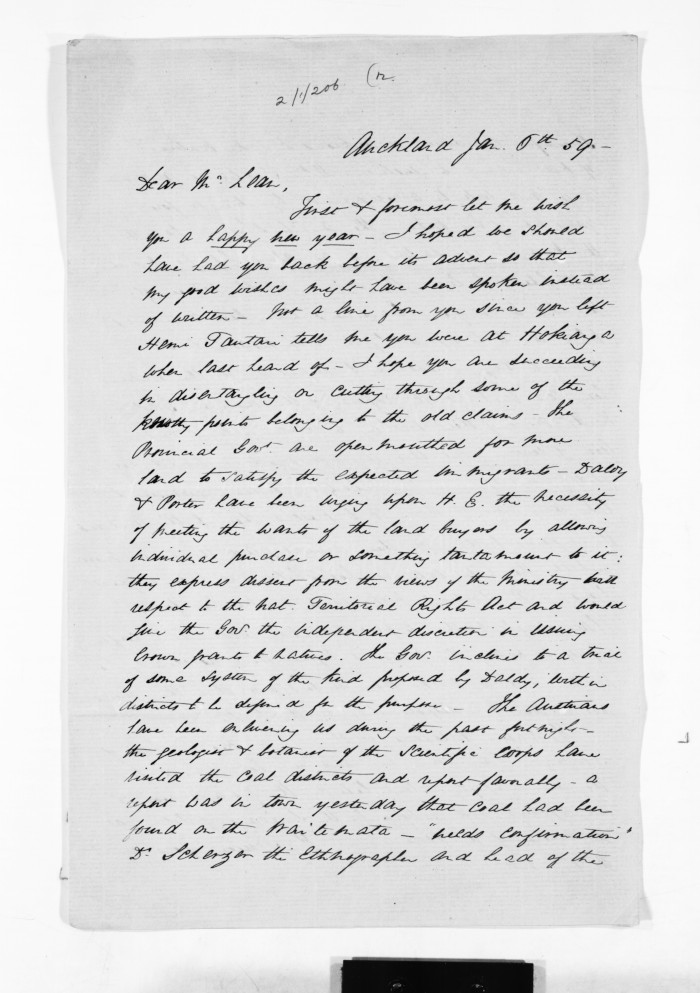 2/1/206 (12.
Auckland Jan. 6th 59 -
Dear Mc Lean,
First & foremost let me wish
you a happy new year - I hoped we should
have had you back before its advent so that
my good wishes might have been spoken instead
of written - Not a line from you since you left
Hemi Tautari tells me you were at Hokianga
when last heard of - I hope you are succeeding
in disentangling or cutting through some of the
knotty points belonging to the old claims - The
Provincial Govt. are openmouthed for more
land to satisfy the expected immigrants - Daldy
& Porter have been urging upon H. E. the necessity
of meeting the wants of the land buyers by allowing
individual purchase or something tantamount to it:
they express dissent from the views of the Ministry with
respect to the Nat. Territorial Rights Act and would
give the Govr. the independent discretion in issuing
Crown grants to natives. The Govr. inclines to a trial
of some system of the kind proposed by Daldy, within
districts to be defined for the purpose - The Austrians
have been enlivening us during the past fortnight -
the geologist & botanist of the Scientific Corps have
visited the coal districts and report favorably - a
report was in town yesterday that coal had been
found on the Waitemata - "needs confirmation"
Dr. Scherzer the Ethnographer and head of the